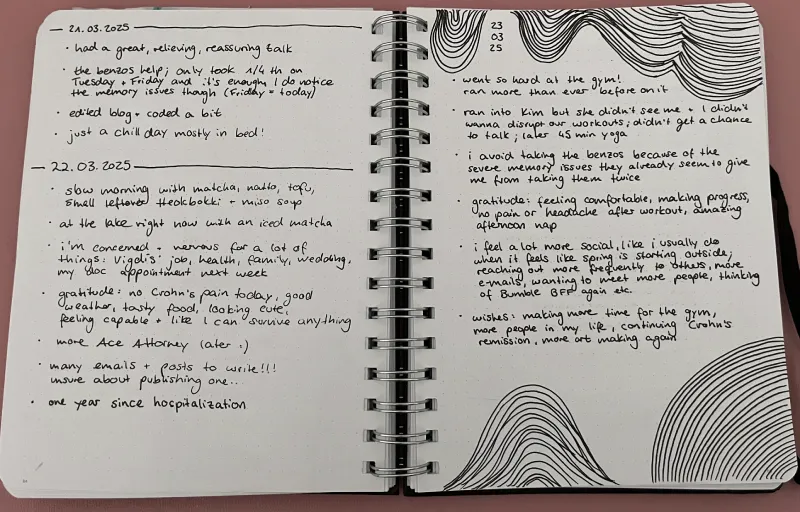 21.03.2025
• had a great, relieving, reassuring talk
• the benzos help; only took 1/4 th on
Tuesday + Friday and it's enough; I do notice
the memory issues though (Friday = today)
• edited blog + coded a bit
• just a chill day mostly in bed!
22.03.2025
• slow morning with matcha, natto, tofu,
small leftover tteokbokki + miso soup
• at the lake right now with an iced matcha
• i'm concerned + nervous for a lot of
things: job, health, family, wedding,
my doc appointment next week
• gratitude: no Crohn's pain today, good
weather, tasty food, looking cute,
feeling capable + like I can survive anything
• more Ace Attorney (later :)
• many emails + posts to write!!!
unsure about publishing one...
• one year since hospitalization
23
03
25
• went so hard at the gym!
ran more than ever before on it
• ran into Kim but she didn't see me + I didn't
wanna disrupt our workouts; didn't get a chance
to talk; later 45 min yoga
• i avoid taking the benzos because of the
severe memory issues they already seem to give
me from taking them twice
• gratitude: feeling comfortable, making progress,
no pain or headache after workout, amazing
afternoon nap
• i feel a lot more social, like i usually do
when it feels like spring is starting outside;
reaching out more frequently to others, more
e-mails, wanting to meet more people, thinking
of Bumble BFF again etc.
• wishes: making more time for the gym,
more people in my life, continuing Crohn's
remission, more art making again